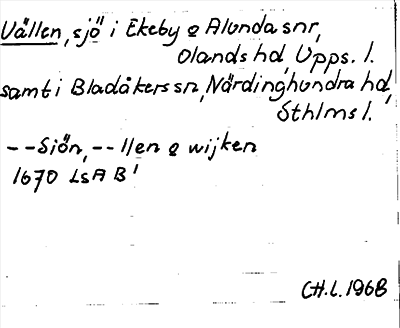 Vällen, sjö i Ekeby o Alunda snr,
Olands hd, Upps. l.
samt i Bladåkers sn, Närdinghundra hd,
Sthlms l.
--Siön, --llen o wijken
1670 LSA B'
CH.L. 1968